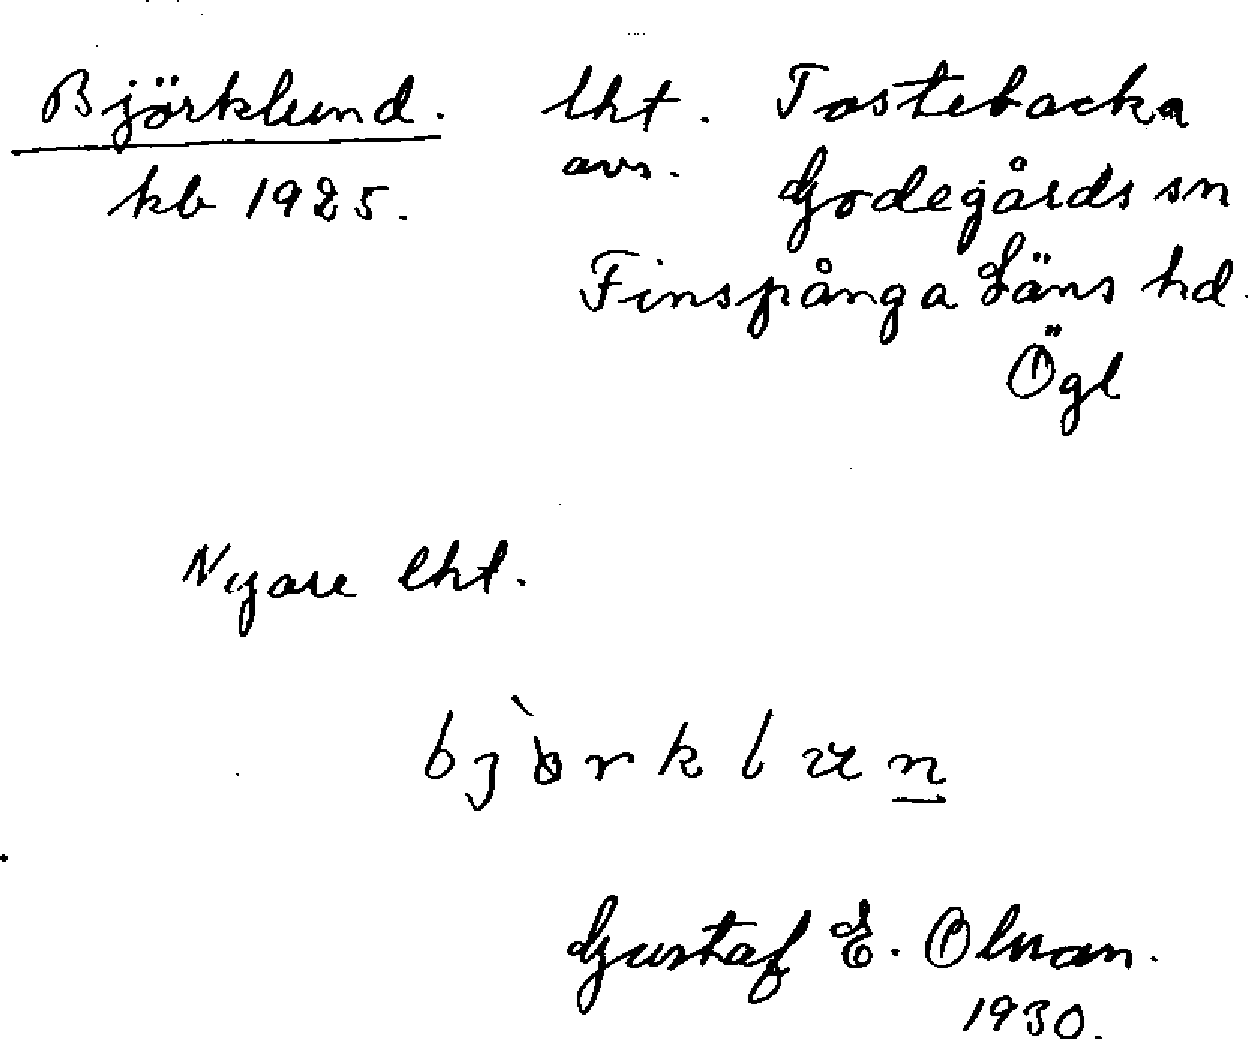 Björklund. lht. Tostebacka
kb 1925. avs. Godegårds sn
Finspånga Läns hd.
Ögl
Nyare lht.
bjò̀rklun̲
Gustaf E. Olson.
1930.